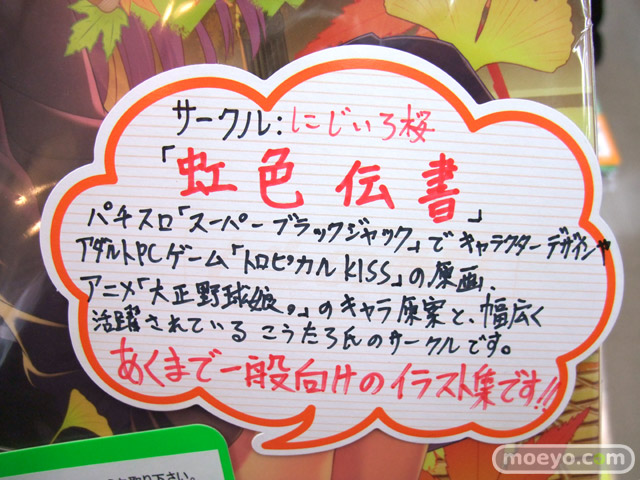 サークル:にじいろ桜
「虹色伝書」
パチスロ「スーパーブラックジャック」でキャラクターデザインや
アダルトPCゲーム「トロピカルKISS」の原画、
アニメ「大正野球娘。」のキャラ原案と、幅広く
活躍されている こうたろ氏のサークルです。
あくまで一般向けのイラスト集です!!
取り下さい。
moeyo.com